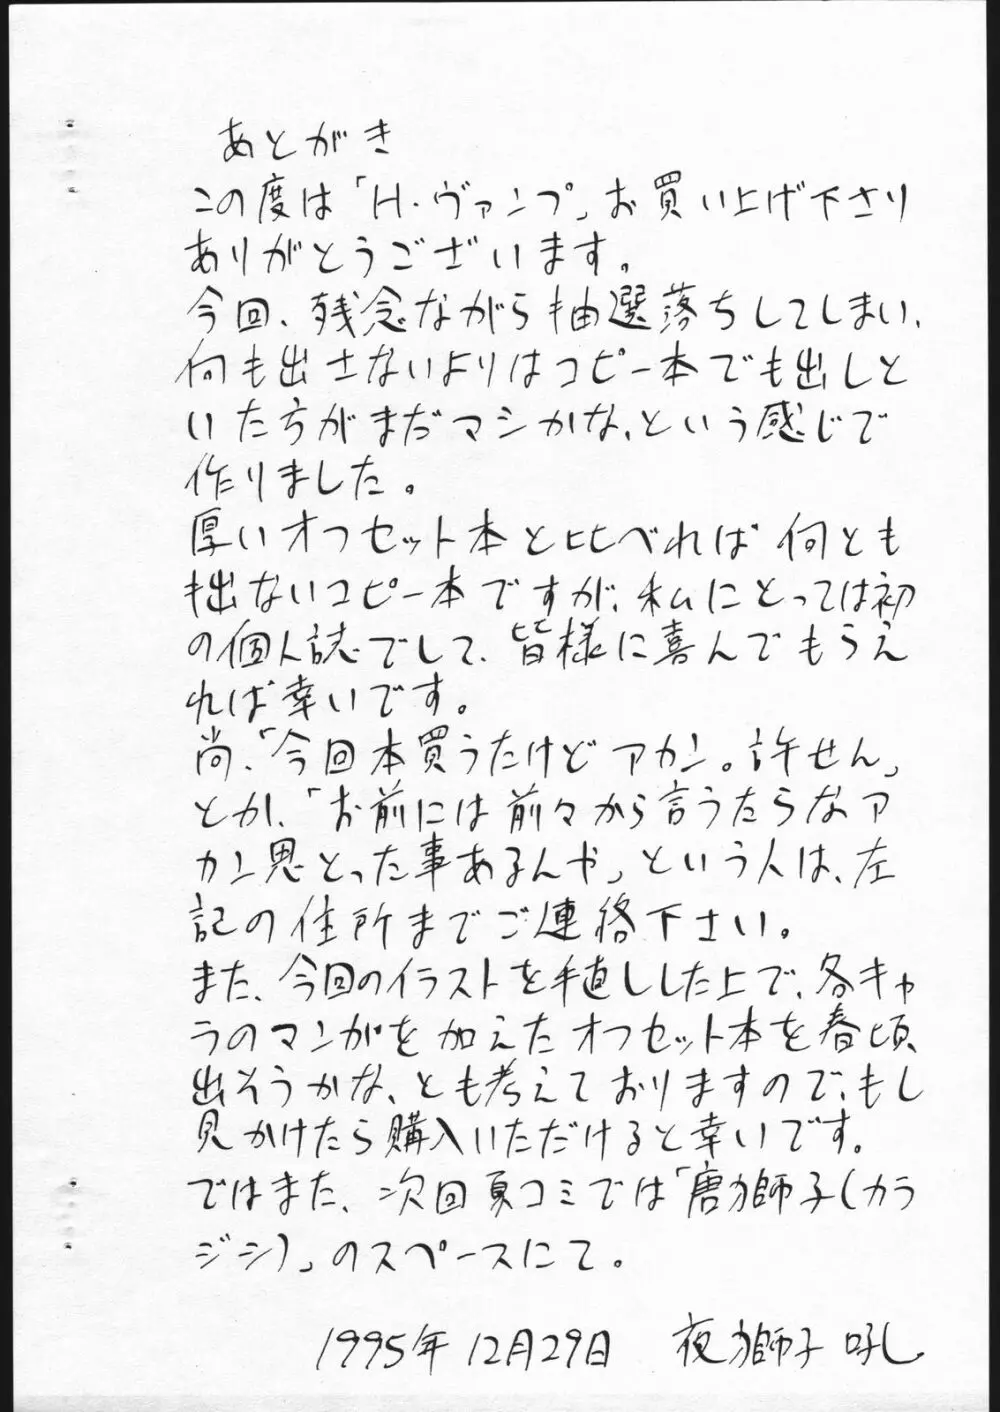 あとがき
この度は「H・ヴァンプ」お買い上げ下さり
ありがとうございます。
今回、残念ながら抽選落ちしてしまい、
何も出さないよりはコピー本でも出しと
いた方がまだマシかな、という感じで
作りました。
厚いオフセット本と比べれば何とも
拙ないコピー本ですが、私にとっては初
の個人誌でして、皆様に喜んでもらえ
れば幸いです。
尚、「今回本買うたけどアカン。許せん」
とか、「お前には前々から言うたらなア
カン思とった事あるんや」という人は、左
記の住所までご連絡下さい。
また、今回のイラストを手直しした上で、各キャ
ラのマンガを加えたオフセット本を春頃
出そうかな、とも考えておりますので、もし
見かけたら購入いただけると幸いです。
ではまた、次回夏コミでは「唐獅子(カラ
ジシ)」のスペースにて。
1995年12月29日 夜獅子吼し